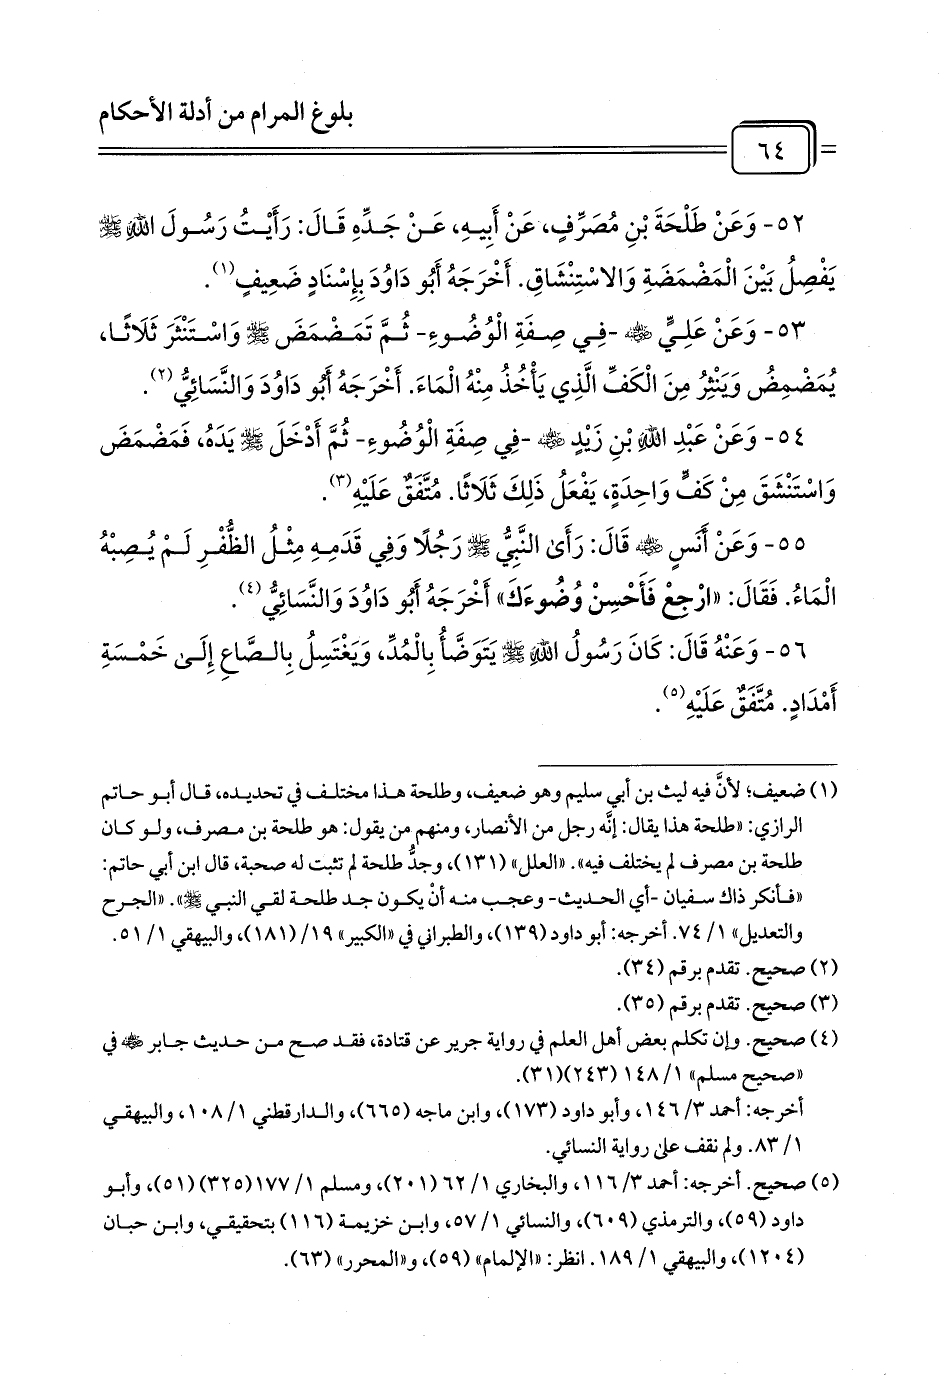 بلوغ المرام من أدلة الأحكام
٦٤
٥٢- وَعَنْ طَلْحَةَ بْنِ مُصَرِّفٍ، عَنْ أَبِيهِ، عَنْ جَدِّهِ قَالَ: رَأَيْتُ رَسُولَ اللهِ ﷺ
يَفْصِلُ بَيْنَ الْمَضْمَضَةِ وَالاسْتِنْشَاقِ. أَخْرَجَهُ أَبُو دَاوُدَ بِإِسْنَادٍ ضَعِيفٍ(١).
٥٣- وَعَنْ عَلِيٍّ ﵁ -فِي صِفَةِ الْوُضُوءِ- ثُمَّ تَمَضْمَضَ ﷺ وَاسْتَنْثَرَ ثَلَاثًا،
يُمَضْمِضُ وَيَنْثِرُ مِنَ الْكَفِّ الَّذِي يَأْخُذُ مِنْهُ الْمَاءَ. أَخْرَجَهُ أَبُو دَاوُدَ وَالنَّسَائِيُّ(٢).
٥٤- وَعَنْ عَبْدِ اللهِ بْنِ زَيْدٍ ﵁ -فِي صِفَةِ الْوُضُوءِ- ثُمَّ أَدْخَلَ ﷺ يَدَهُ، فَمَضْمَضَ
وَاسْتَنْشَقَ مِنْ كَفٍّ وَاحِدَةٍ، يَفْعَلُ ذَلِكَ ثَلَاثًا. مُتَّفَقٌ عَلَيْهِ(٣).
٥٥- وَعَنْ أَنَسٍ ﵁ قَالَ: رَأَىٰ النَّبِيُّ ﷺ رَجُلًا وَفِي قَدَمِهِ مِثْلُ الظُّفْرِ لَمْ يُصِبْهُ
الْمَاءُ. فَقَالَ: «ارْجِعْ فَأَحْسِنْ وُضُوءَكَ» أَخْرَجَهُ أَبُو دَاوُدَ وَالنَّسَائِيُّ(٤).
٥٦- وَعَنْهُ قَالَ: كَانَ رَسُولُ اللهِ ﷺ يَتَوَضَّأُ بِالْمُدِّ، وَيَغْتَسِلُ بِالصَّاعِ إِلَىٰ خَمْسَةِ
أَمْدَادٍ. مُتَّفَقٌ عَلَيْهِ(٥).
(١) ضعيف؛ لأنَّ فيه ليث بن أبي سليم وهو ضعيف، وطلحة هذا مختلف في تحديده، قال أبو حاتم
الرازي: «طلحة هذا يقال: إنَّه رجل من الأنصار، ومنهم من يقول: هو طلحة بن مصرف، ولو كان
طلحة بن مصرف لم يختلف فيه». «العلل» (١٣١)، وجدُّ طلحة لم تثبت له صحبة، قال ابن أبي حاتم:
«فأنكر ذاك سفيان -أي الحديث- وعجب منه أنْ يكون جد طلحة لقي النبي ﷺ». «الجرح
والتعديل» ١/ ٧٤. أخرجه: أبو داود (١٣٩)، والطبراني في «الكبير» ١٩/ (١٨١)، والبيهقي ١/ ٥١.
(٢) صحيح. تقدم برقم (٣٤).
(٣) صحيح. تقدم برقم (٣٥).
(٤) صحيح. وإن تكلم بعض أهل العلم في رواية جرير عن قتادة، فقد صح من حديث جابر ﵁ في
«صحيح مسلم» ١/ ١٤٨ (٢٤٣)(٣١).
أخرجه: أحمد ٣/ ١٤٦، وأبو داود (١٧٣)، وابن ماجه (٦٦٥)، والدارقطني ١/ ١٠٨، والبيهقي
١/ ٨٣. ولم نقف على رواية النسائي.
(٥) صحيح. أخرجه: أحمد ٣/ ١١٦، والبخاري ١/ ٦٢ (٢٠١)، ومسلم ١/ ١٧٧(٣٢٥)(٥١)، وأبو
داود (٥٩)، والترمذي (٦٠٩)، والنسائي ١/ ٥٧، وابن خزيمة (١١٦) بتحقيقي، وابن حبان
(١٢٠٤)، والبيهقي ١/ ١٨٩. انظر: «الإلمام» (٥٩)، و«المحرر» (٦٣).